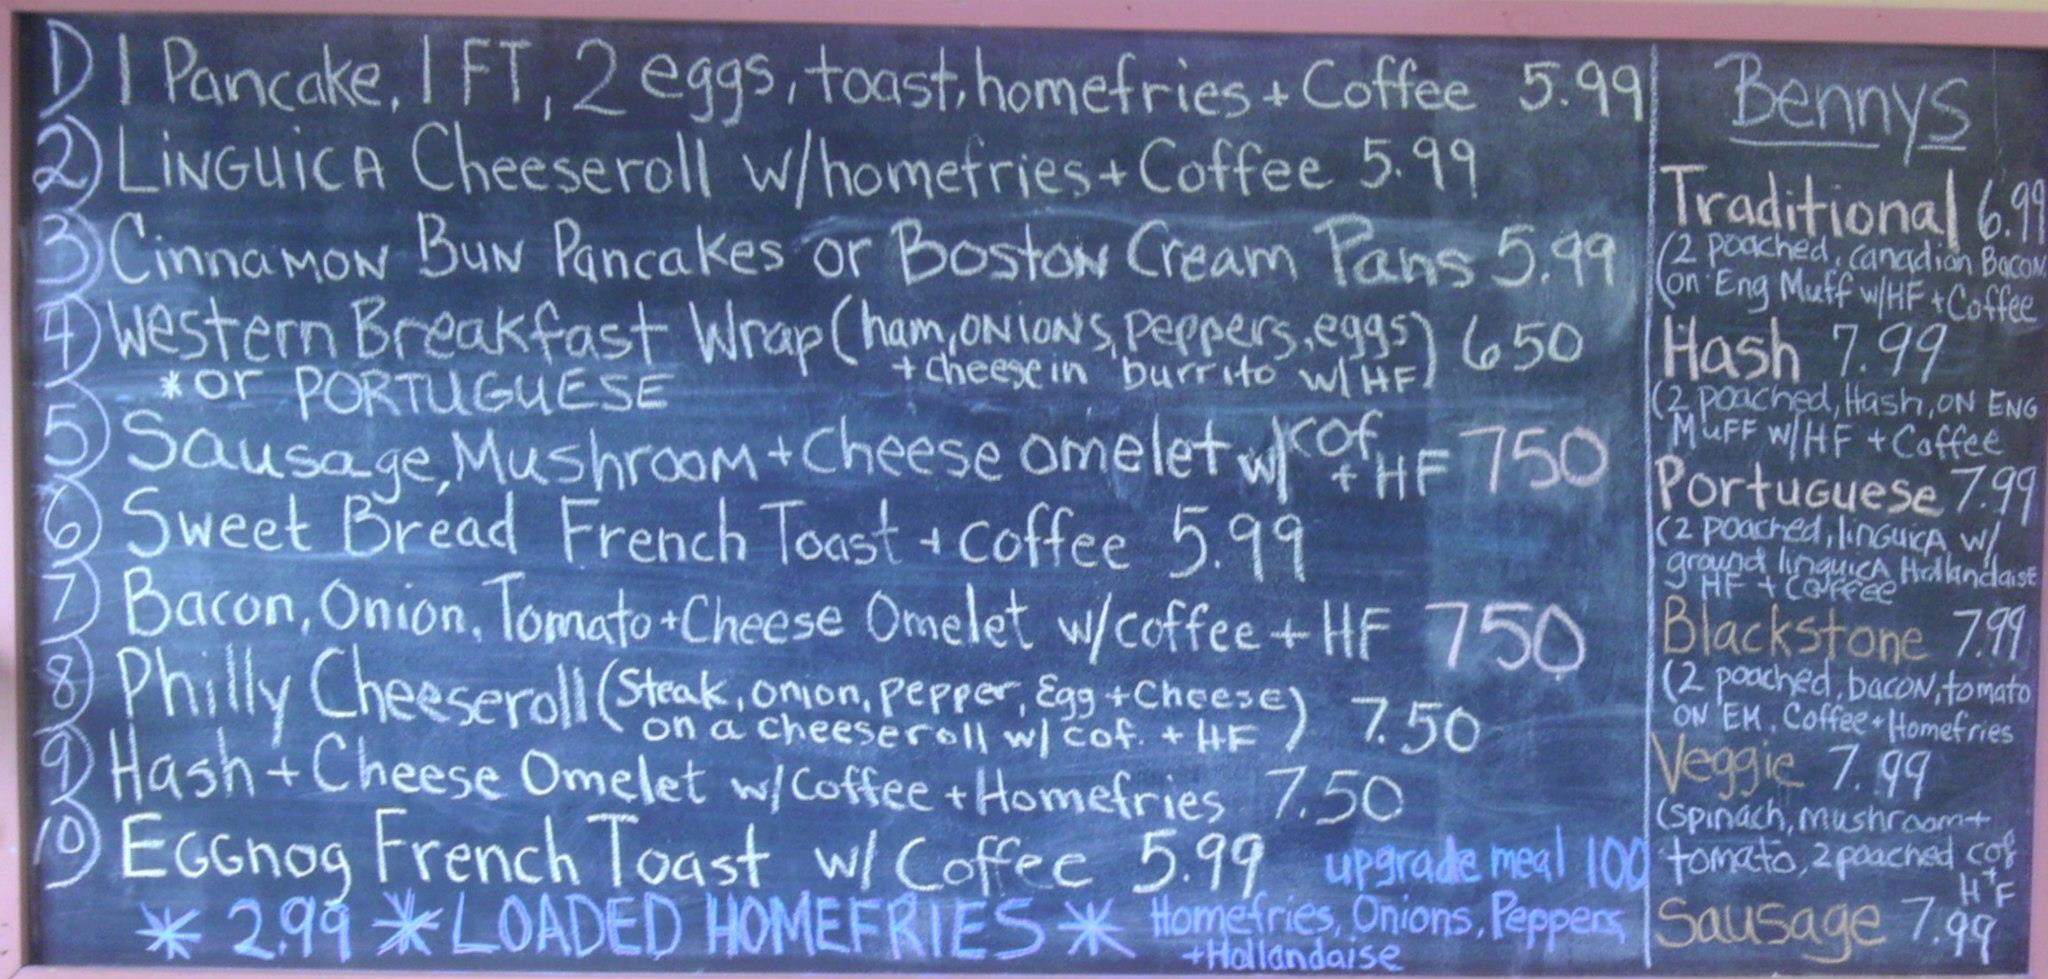 1) 1 Pancake, 1 FT, 2 eggs, toast, homefries + Coffee 5.99
2) LiNGUiCA Cheeseroll w/homefries + Coffee 5.99
3) CinnaMON BUN Pancakes or BostoN Cream Pans 5.99
4) Western Breakfast Wrap (ham, ONIONS, peppers, eggs) 650
+ cheese in burrito w/ HF)
*or PORTUGUESE
5) Sausage, Mushroom + Cheese omelet w/ cof + HF 750
6) Sweet Bread French Toast + coffee 5.99
7) Bacon, Onion, Tomato + Cheese Omelet w/coffee + HF 750
8) Philly Cheeseroll (Steak, onion, pepper, Egg + Cheese
on a cheeseroll w/ cof. + HF) 7.50
9) Hash + Cheese Omelet w/Coffee + Homefries 7.50
10) EGGnog French Toast w/ Coffee 5.99
upgrade meal 100
* 2.99 * LOADED HOMEFRIES * Homefries, Onions, Peppers,
+Hollandaise
Bennys
Traditional 6.99
(2 poached, canadian Bacon
on Eng Muff w/HF + Coffee
Hash 7.99
(2 poached, Hash, ON ENG
MUFF w/HF + Coffee
Portuguese 7.99
(2 poached, linguicA w/
ground linguicA Hollandaise
HF + Coffee
Blackstone 7.99
(2 poached, bacon, tomato
ON EM. Coffee + Homefries
Veggie 7.99
(spinach, mushroom +
tomato, 2 poached cof
+ HF
Sausage 7.99